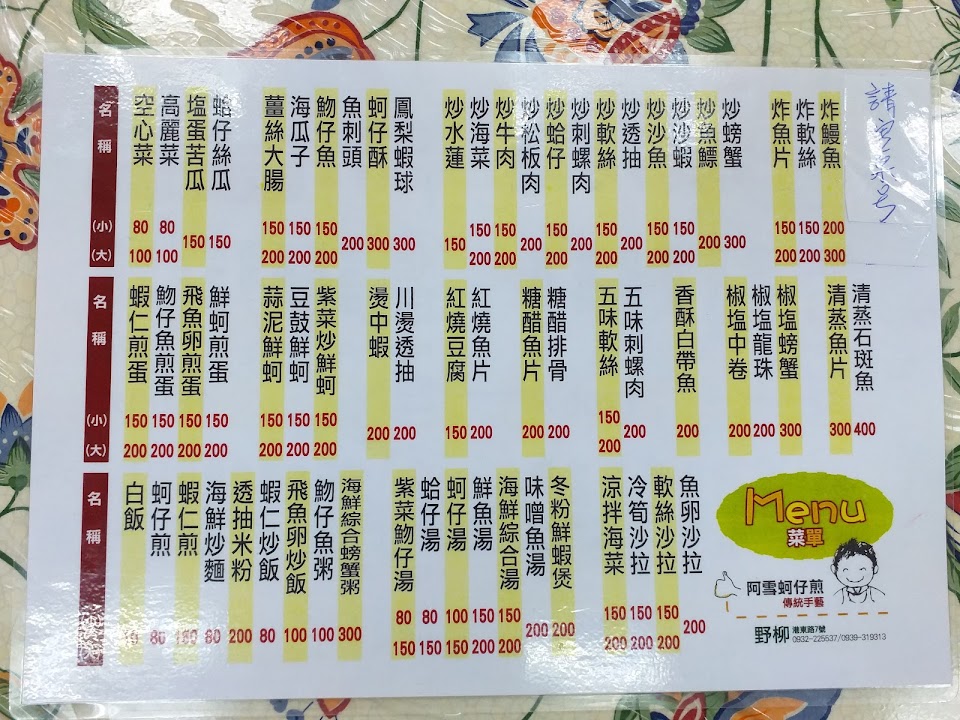 名稱 (小) (大)
空心菜 80 100
高麗菜 80 100
塩蛋苦瓜 150
蛤仔絲瓜 150
薑絲大腸 150 200
海瓜子 150 200
魩仔魚 150 200
魚刺頭 200
蚵仔酥 300
鳳梨蝦球 300
炒水蓮 150
炒海菜 150 200
炒牛肉 150 200
炒松板肉 200
炒蛤仔 150 200
炒刺螺肉 200
炒軟絲 150 200
炒透抽 200
炒沙魚 150 200
炒沙蝦 150 200
炒魚鰾 200
炒螃蟹 300
炸魚片 150 200
炸軟絲 150 200
炸鰻魚 200 300
請
名稱 (小) (大)
蝦仁煎蛋 150 200
魩仔魚煎蛋 150 200
飛魚卵煎蛋 150 200
鮮蚵煎蛋 150 200
蒜泥鮮蚵 150 200
豆鼓鮮蚵 150 200
紫菜炒鮮蚵 150 200
燙中蝦 200
川燙透抽 200
紅燒豆腐 150
紅燒魚片 200
糖醋魚片 200
糖醋排骨 200
五味軟絲 150 200
五味刺螺肉 200
香酥白帶魚 200
椒塩中卷 200
椒塩龍珠 200
椒塩螃蟹 300
清蒸魚片 300
清蒸石斑魚 400
名稱
白飯
蚵仔煎 80
蝦仁煎
海鮮炒麵 80
透抽米粉 200
蝦仁炒飯 80
飛魚卵炒飯 100
魩仔魚粥 100
海鮮綜合螃蟹粥 300
紫菜魩仔湯 80 150
蛤仔湯 80 150
蚵仔湯 100 150
鮮魚湯 150 200
海鮮綜合湯 150 200
味噌魚湯 200
冬粉鮮蝦煲 200
涼拌海菜 150 200
冷筍沙拉 150 200
軟絲沙拉 150 200
魚卵沙拉 200
Menu
菜單
阿雪蚵仔煎
傳統手藝
野柳 港東路7號
0932-225537/0939-319313